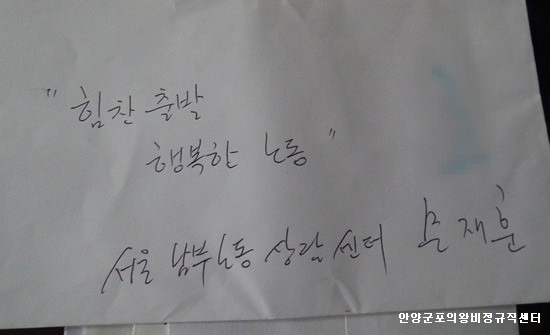 "힘찬 출발
행복한 노동"
서울 남부노동 상담센터 문재훈
안양군포의왕비정규직센터